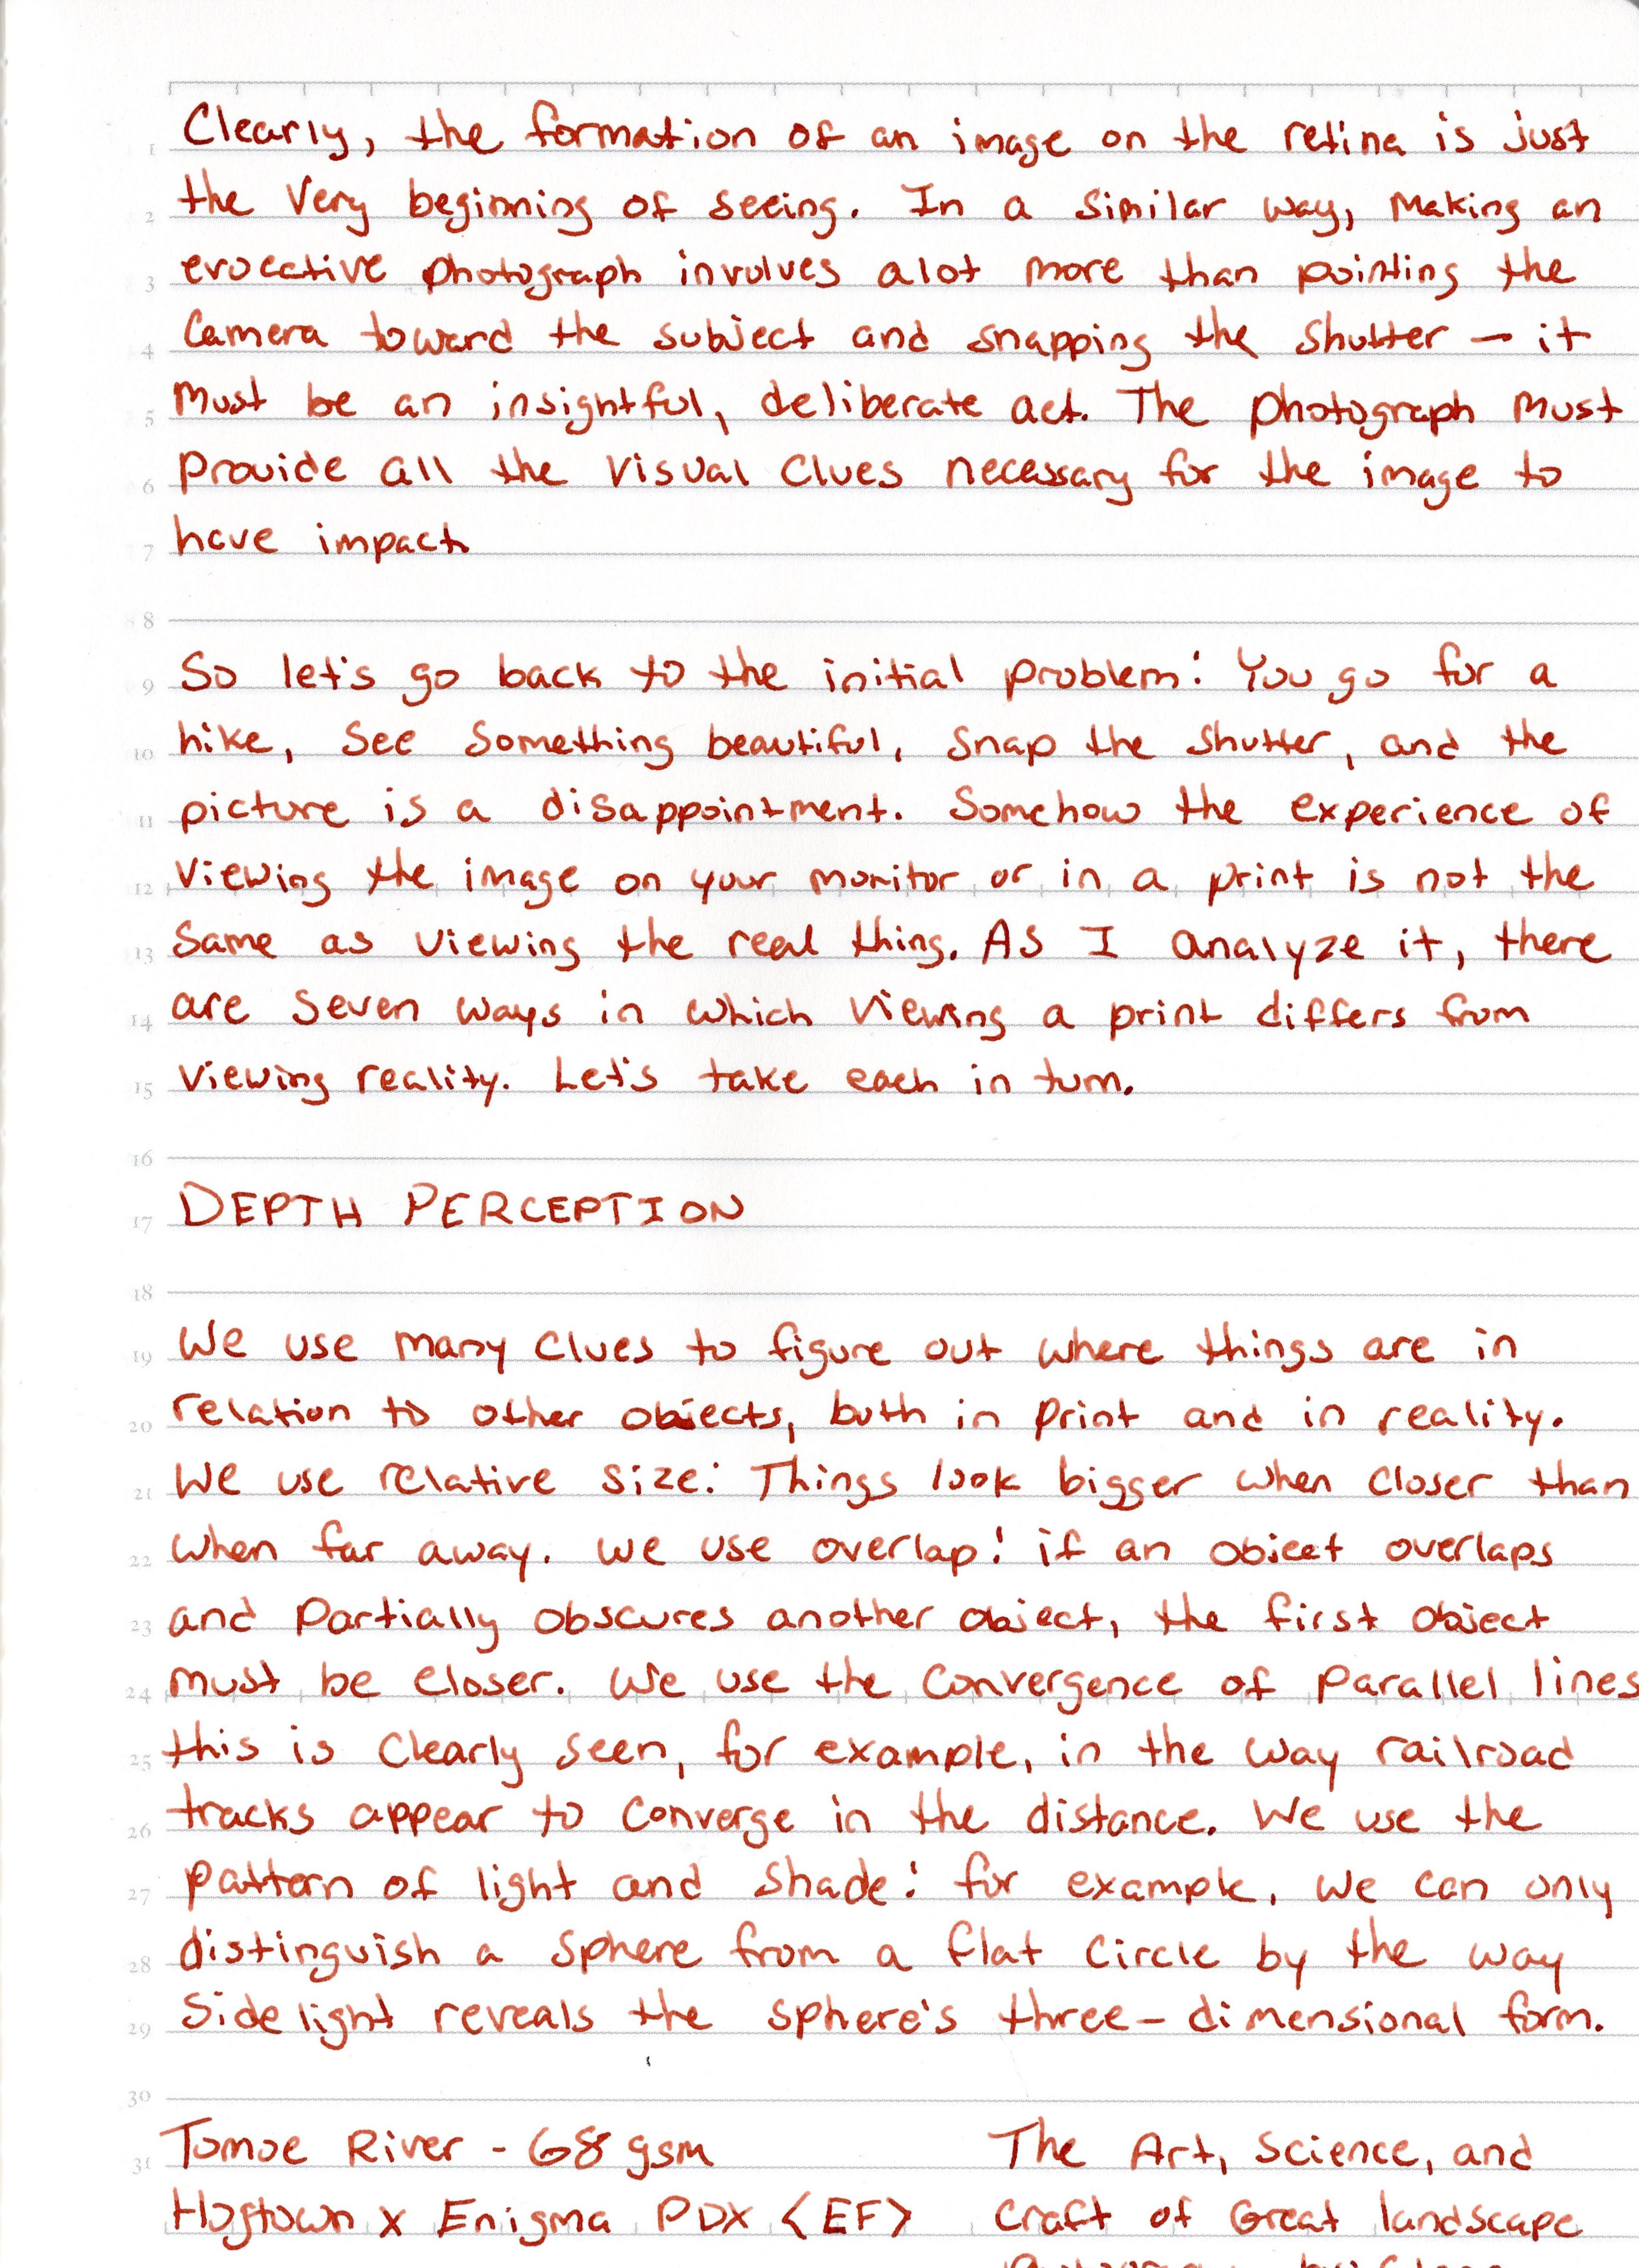 Clearly, the formation of an image on the retina is just
1
the very beginning of seeing. In a similar way, making an
2
evocative photograph involves alot more than pointing the
3
Camera toward the subject and snapping the shutter — it
4
must be an insightful, deliberate act. The photograph must
5
provide all the visual clues necessary for the image to
6
have impact
7
8
So let's go back to the initial problem: You go for a
9
hike, see something beautiful, snap the shutter, and the
10
picture is a disappointment. Somehow the experience of
11
viewing the image on your monitor or in a print is not the
12
same as viewing the real thing. As I analyze it, there
13
are seven ways in which viewing a print differs from
14
viewing reality. Let's take each in turn.
15
16
DEPTH PERCEPTION
17
18
We use many clues to figure out where things are in
19
relation to other objects, both in print and in reality.
20
We use relative size: Things look bigger when closer than
21
when far away. we use overlap: if an object overlaps
22
and partially obscures another object, the first object
23
must be closer. We use the convergence of parallel lines
24
this is clearly seen, for example, in the way railroad
25
tracks appear to converge in the distance. We use the
26
pattern of light and shade: for example, we can only
27
distinguish a sphere from a flat circle by the way
28
Sidelight reveals the sphere's three-dimensional form.
29
30
Tomoe River - 68 gsm
The Art, Science, and
31
Hogtown x Enigma PDX <EF>
Craft of Great landscape